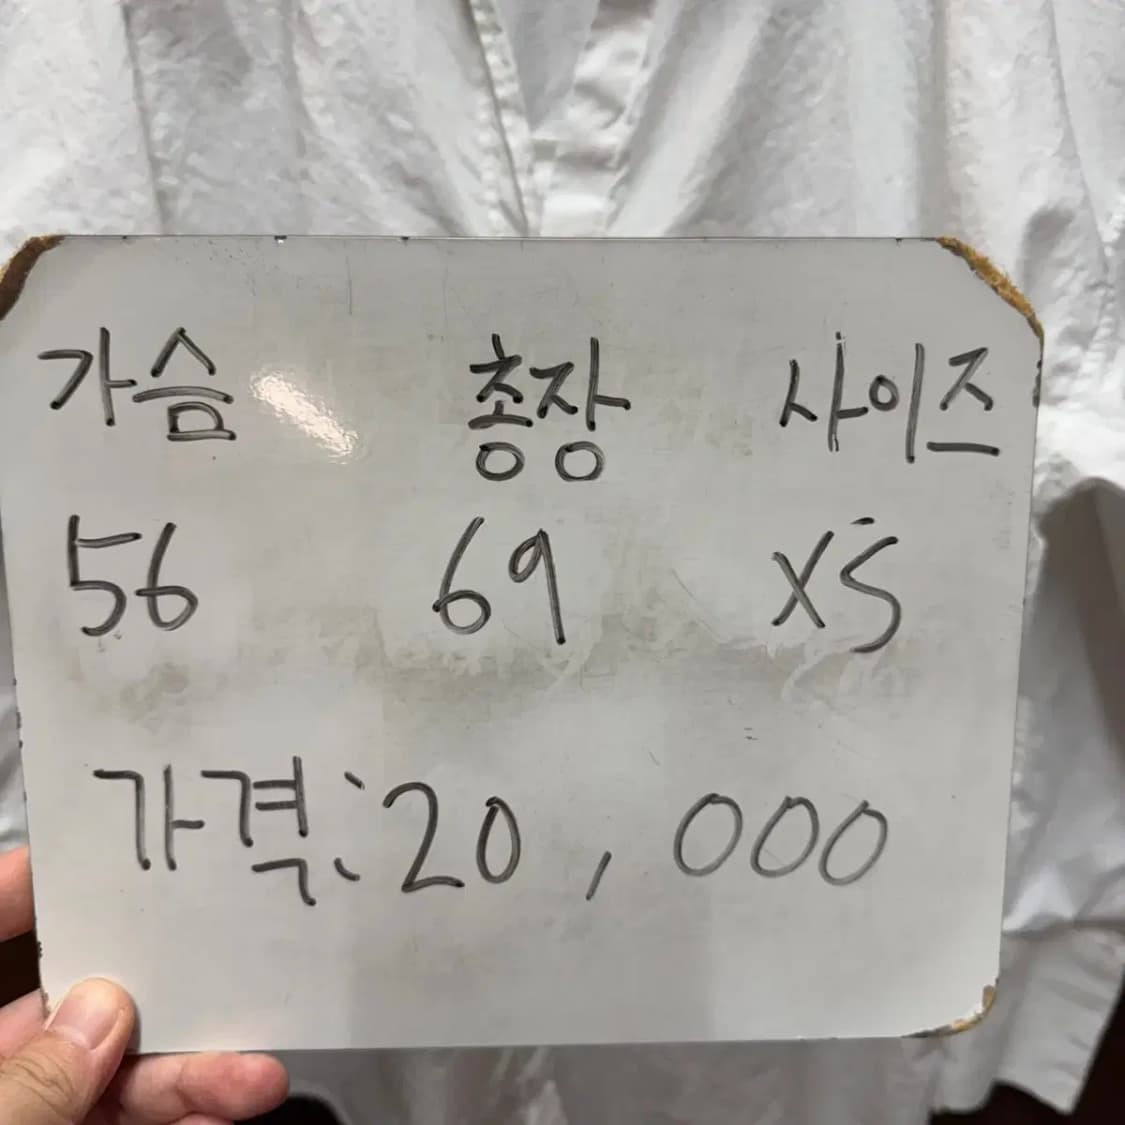 가슴 총장 사이즈
56 69 XS
가격: 20,000